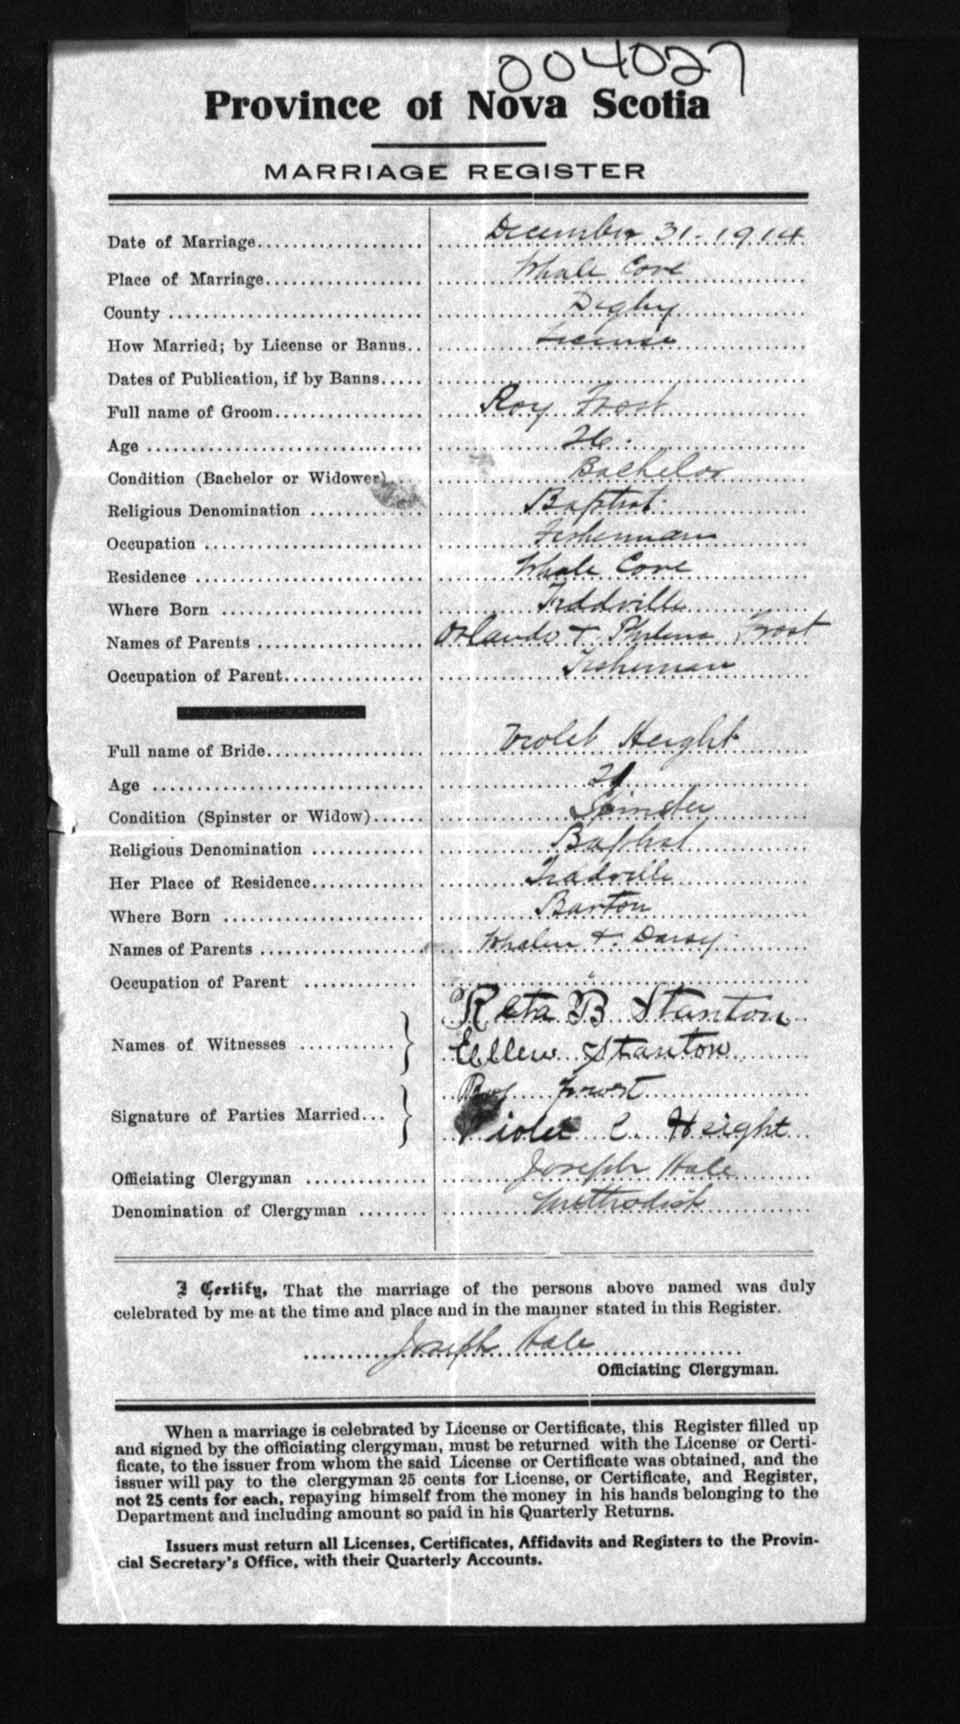 004027
Province of Nova Scotia
MARRIAGE REGISTER
Date of Marriage December 31-1914
Place of Marriage Whale Cove
County Digby
How Married; by License or Banns License
Dates of Publication, if by Banns
Full name of Groom Roy Frost
Age 26
Condition (Bachelor or Widower) Bachelor
Religious Denomination Baptist
Occupation Fisherman
Residence Whale Cove
Where Born Tiddville
Names of Parents Orlando + Frost
Occupation of Parent Fisherman
Full name of Bride Violet Height
Age
Condition (Spinster or Widow) Spinster
Religious Denomination Baptist
Her Place of Residence
Where Born Barton
Names of Parents Whalen + Darsy
Occupation of Parent
Names of Witnesses Reta B Stanton
Ellen Stanton
Signature of Parties Married Roy Frost
Violet C. Height
Officiating Clergyman Joseph Hale
Denomination of Clergyman Methodist
I Certify, That the marriage of the persons above named was duly
celebrated by me at the time and place and in the manner stated in this Register.
Joseph Hale
Officiating Clergyman.
When a marriage is celebrated by License or Certificate, this Register filled up
and signed by the officiating clergyman, must be returned with the License or Certi-
ficate, to the issuer from whom the said License or Certificate was obtained, and the
issuer will pay to the clergyman 25 cents for License, or Certificate, and Register,
not 25 cents for each, repaying himself from the money in his hands belonging to the
Department and including amount so paid in his Quarterly Returns.
Issuers must return all Licenses, Certificates, Affidavits and Registers to the Provin-
cial Secretary's Office, with their Quarterly Accounts.